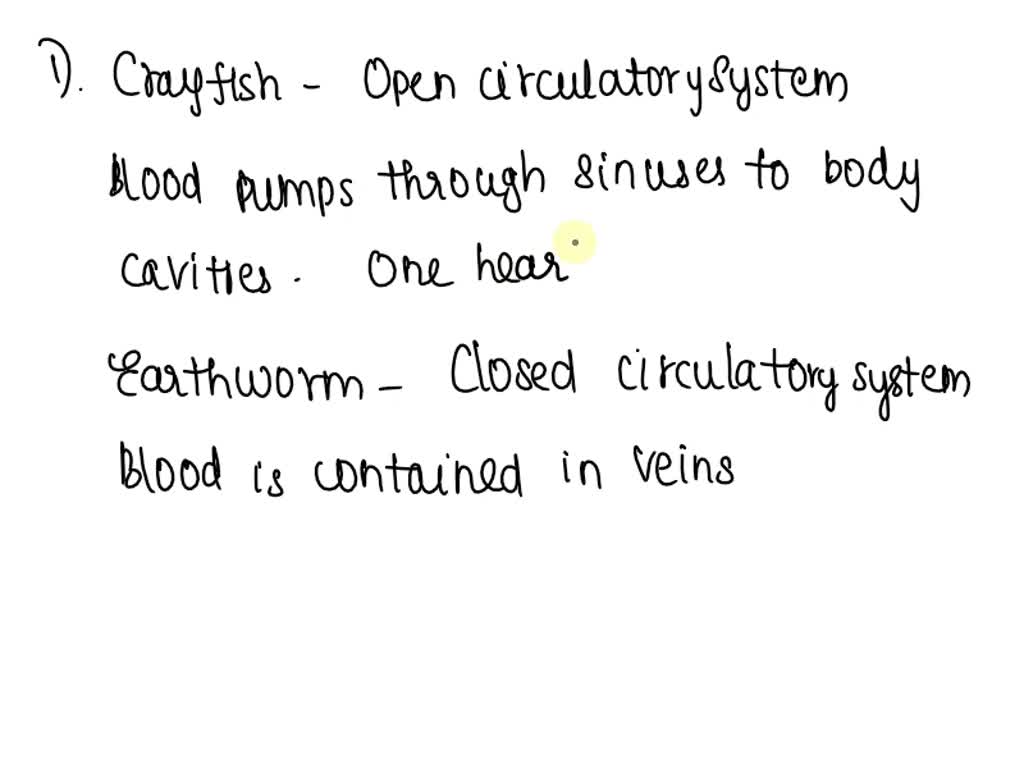 1). Crayfish - Open circulatory system
Blood pumps through sinuses to body
cavities. One hear
Earthworm - Closed circulatory system
Blood is contained in veins